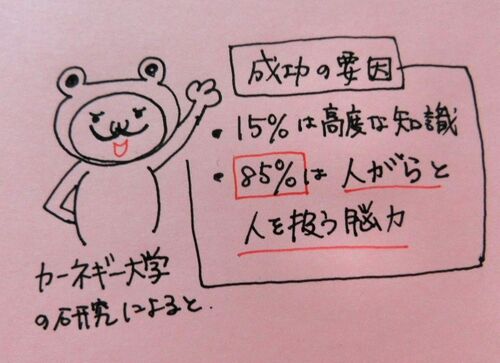 成功の要因
・15%は高度な知識
・85%は人がらと
人を扱う脳力
カーネギー大学
の研究によると.